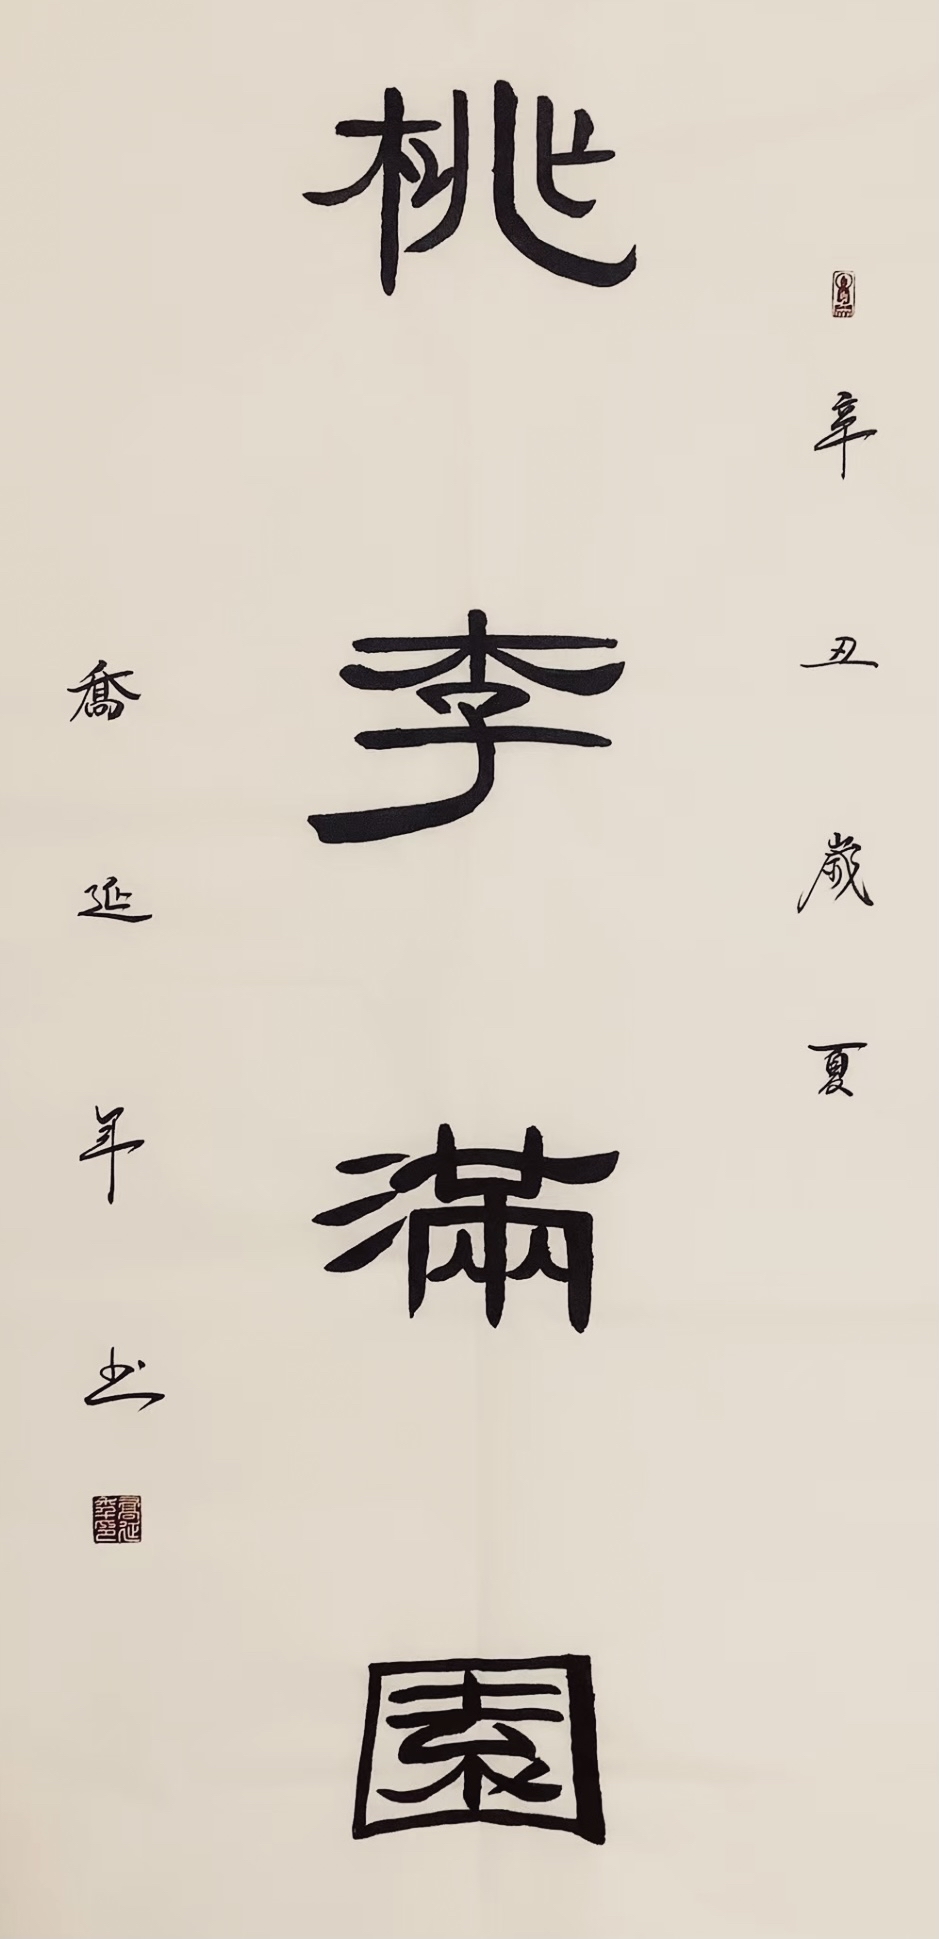 辛丑歲夏
桃李滿園
喬延年书
喬延年印